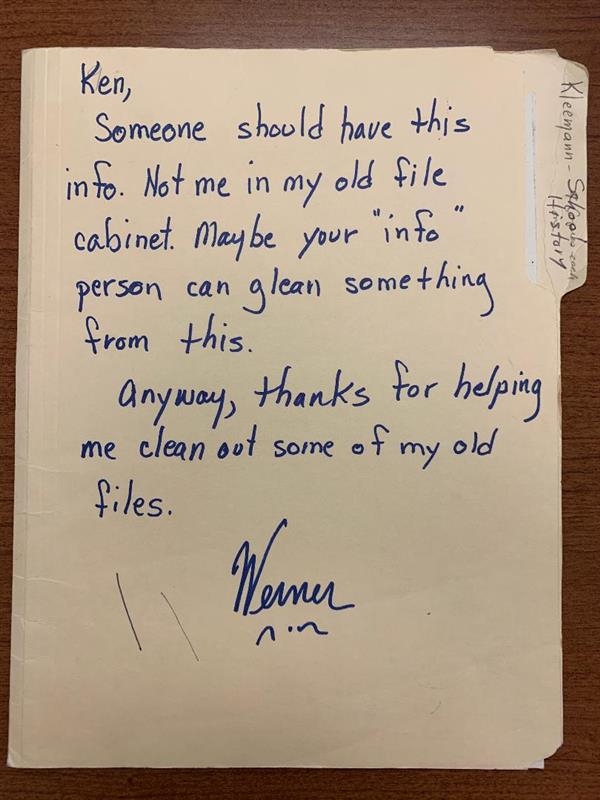 Ken,
Someone should have this
info. Not me in my old file
cabinet. Maybe your "info"
person can glean something
from this.
Anyway, thanks for helping
me clean out some of my old
files.
Werner
Kleemann -
History